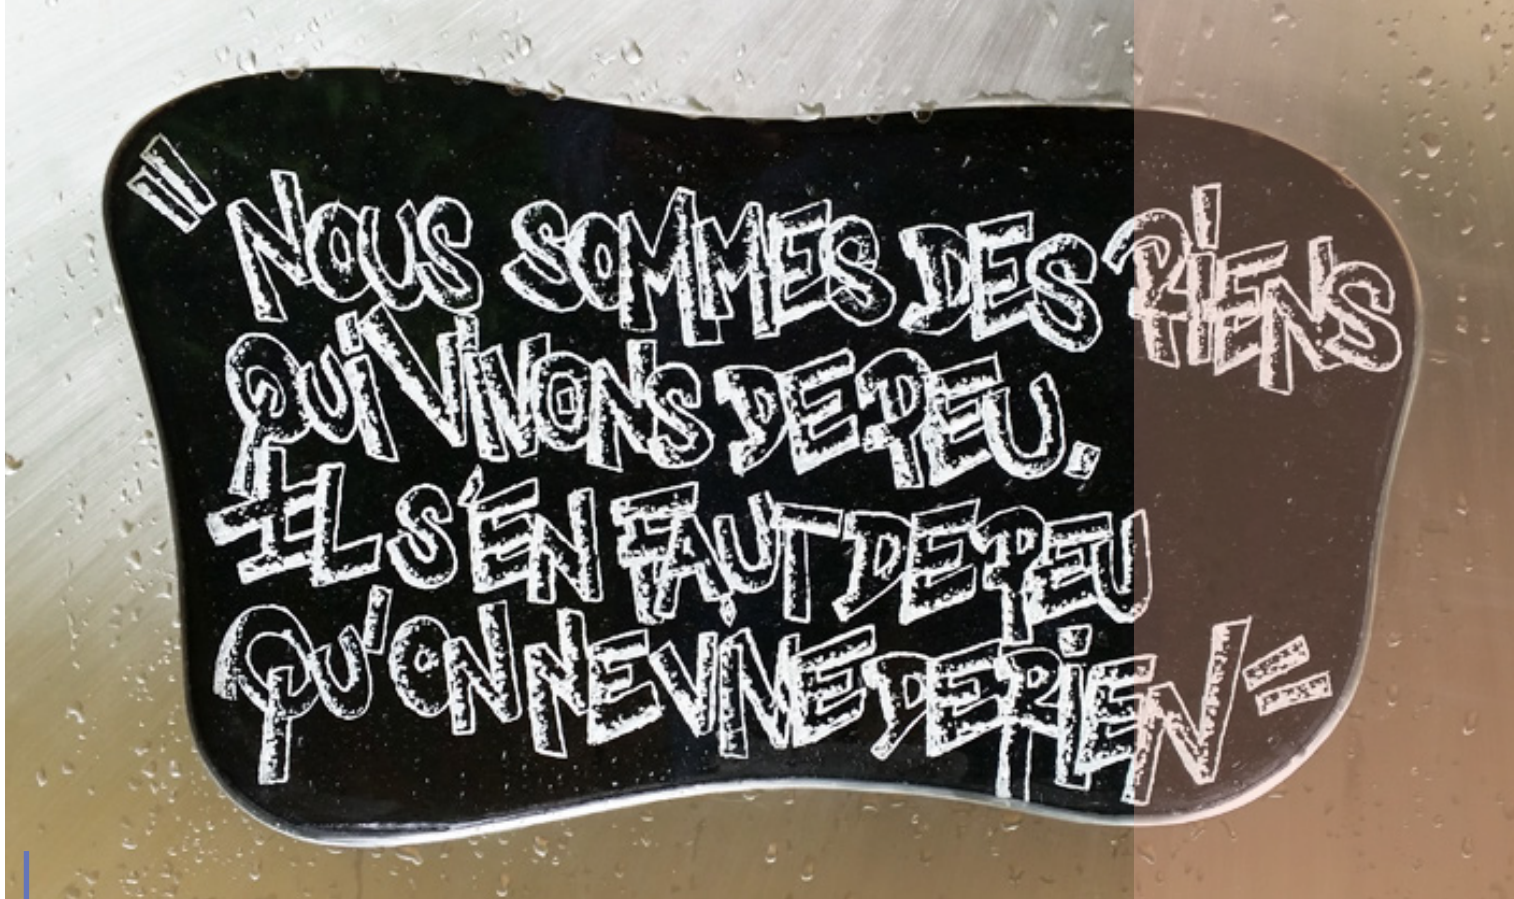 "NOUS SOMMES DES RIENS
QUI VIVONS DE PEU.
IL S'EN FAUT DE PEU
QU'ON NE VIVE DE RIEN"